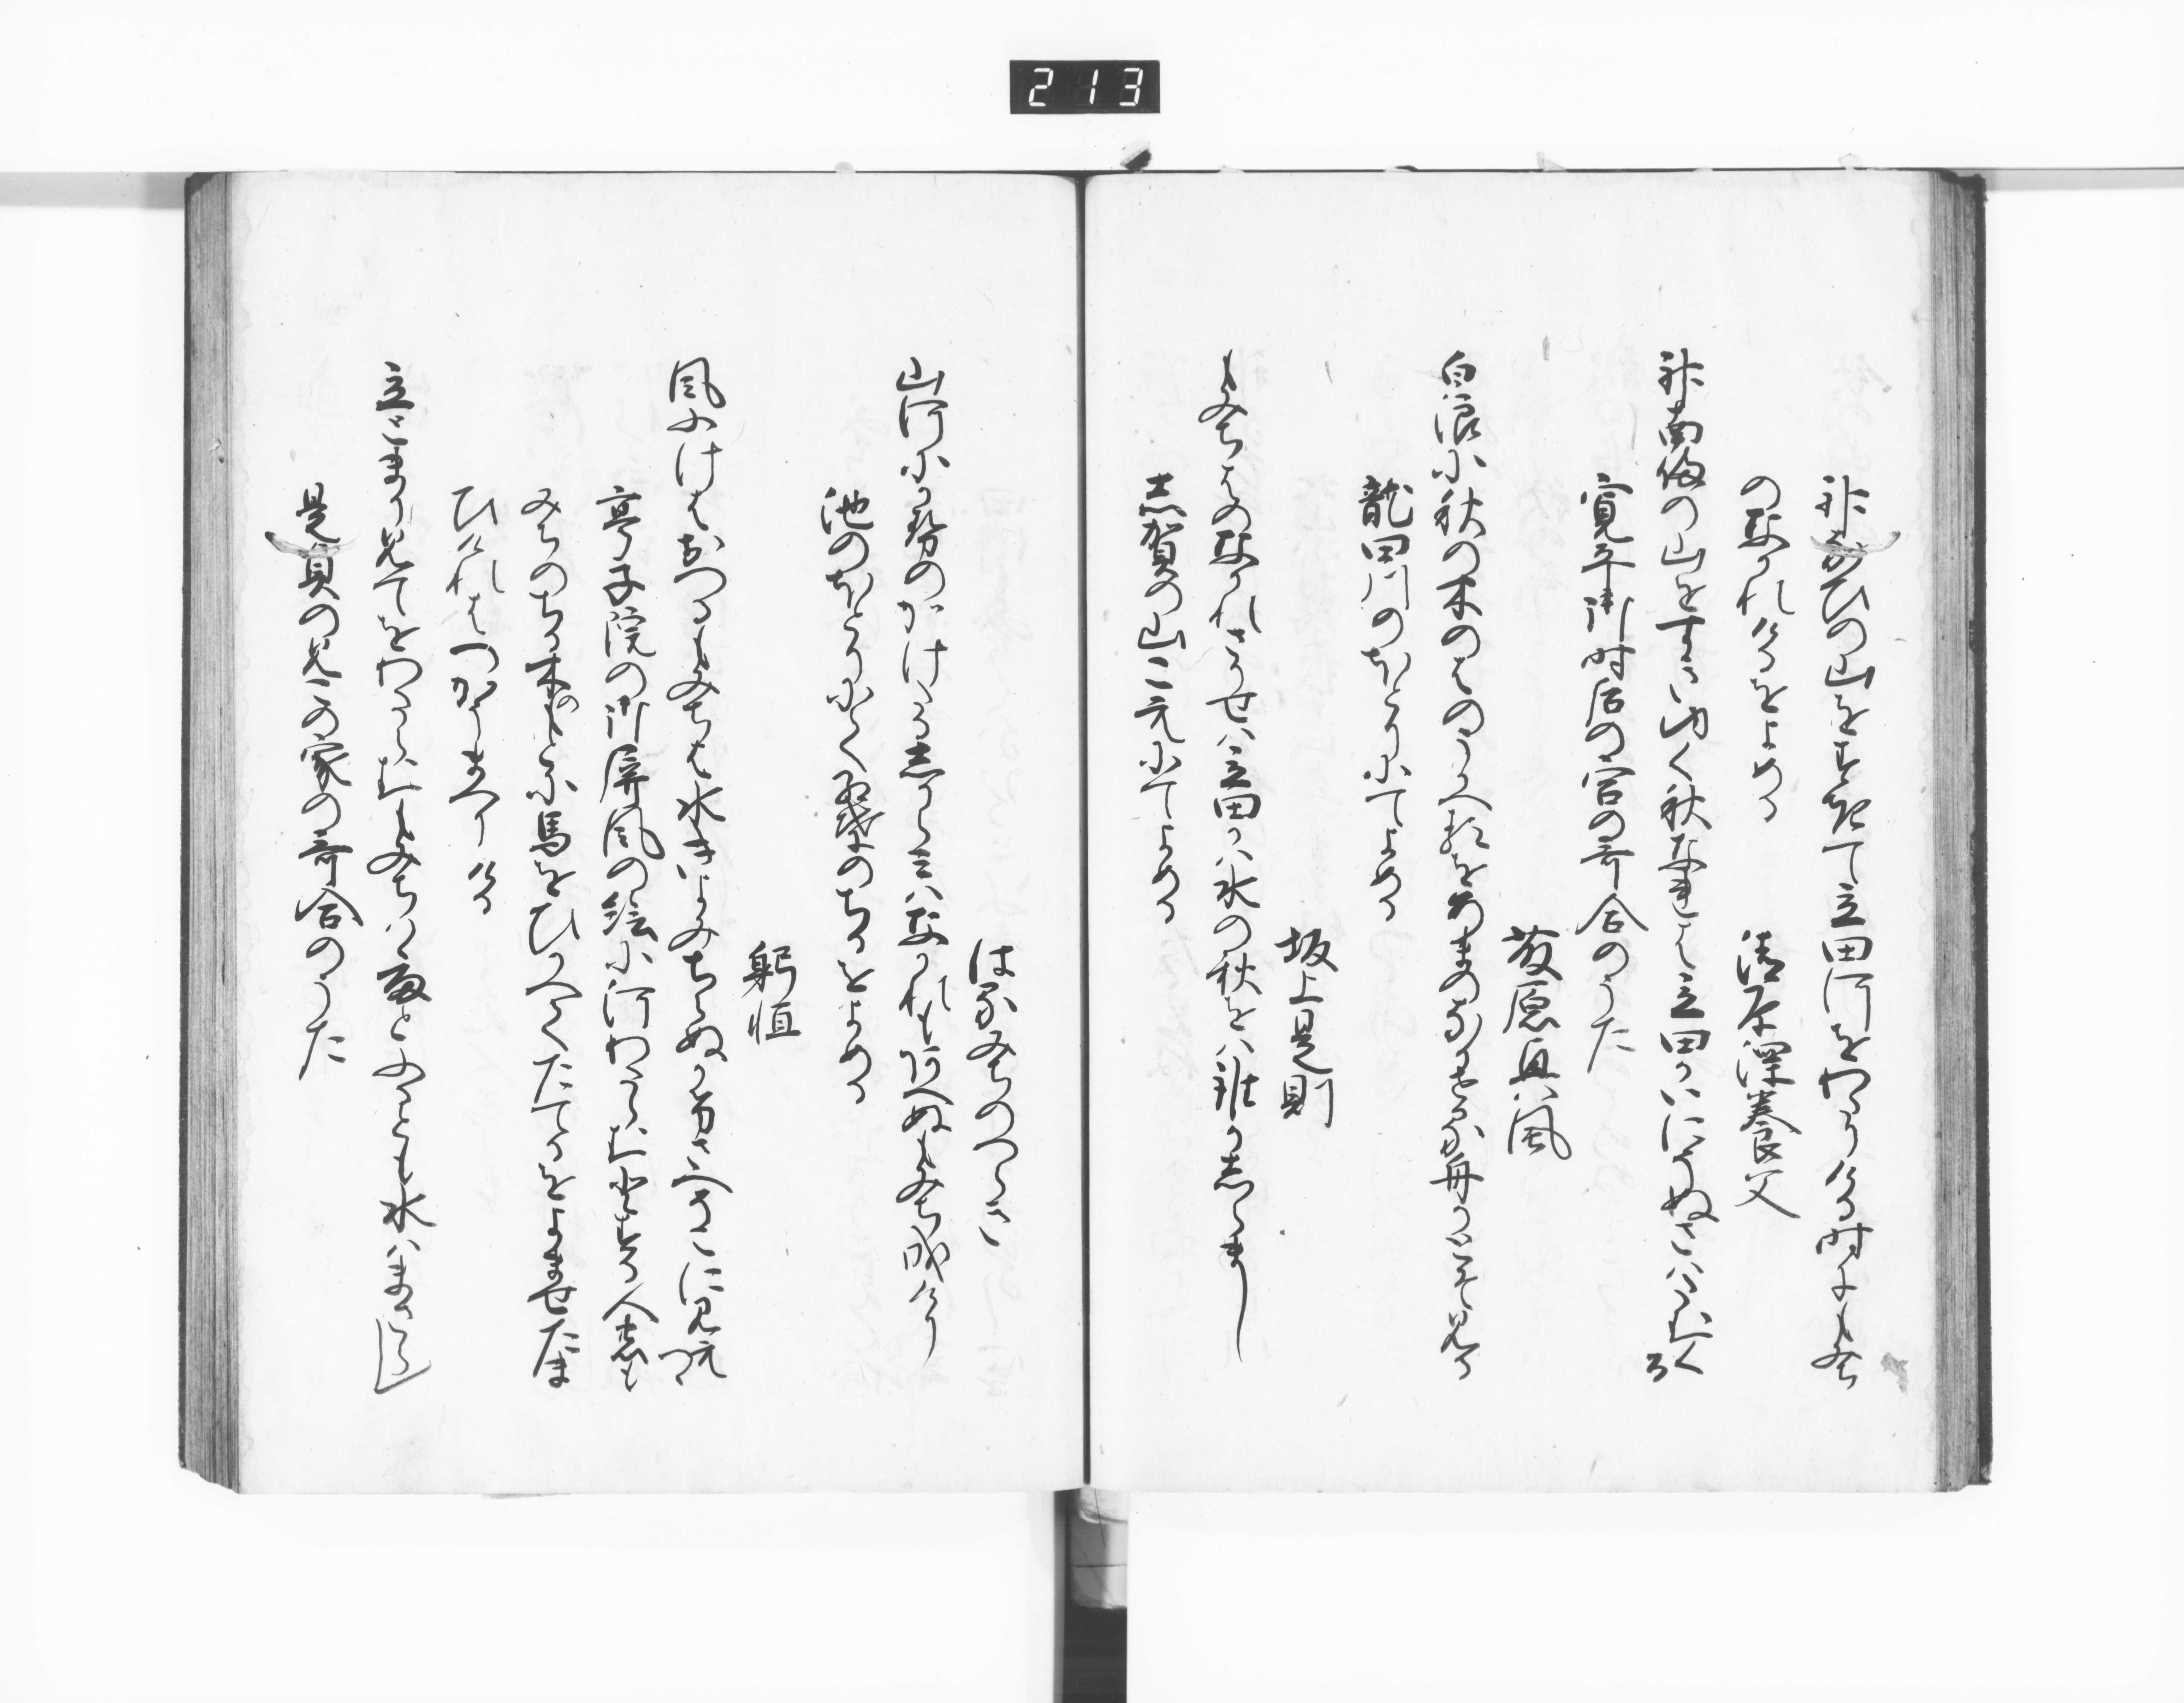 213
神なひの山をすきて立田河をわたりける時にもみち
のなかれけるをよめる
清原深養父
神南備の山をすきゆく秋なれは立田かはにそぬさはたむくる
寛平御時后の宮の哥合のうた
藤原興風
白浪に秋の木のはのうかへるをあまのなかせる舟かとそ見る
龍田川のほとりにてよめる
坂上是則
もみちはのなかれさりせは立田かは水の秋をは誰かしらまし
志賀の山こえにてよめる
はるみちのつらき
山河に風のかけたるしからみはなかれもあへぬもみち成けり
池のほとりにて紅葉のちるをよめる
躬恒
風ふけはおつるもみちは水きよみちらぬかけさへそこに見えつゝ
亭子院の御屏風の絵に河わたらむとする人の
みちのちる木のもとに馬をひかへてたてるをよませたま
ひけれはつかうまつりける
立とまり見てをわたらむもみちはゝ雨とふるとも水はまさらし
是貞のみこの家の哥合のうた